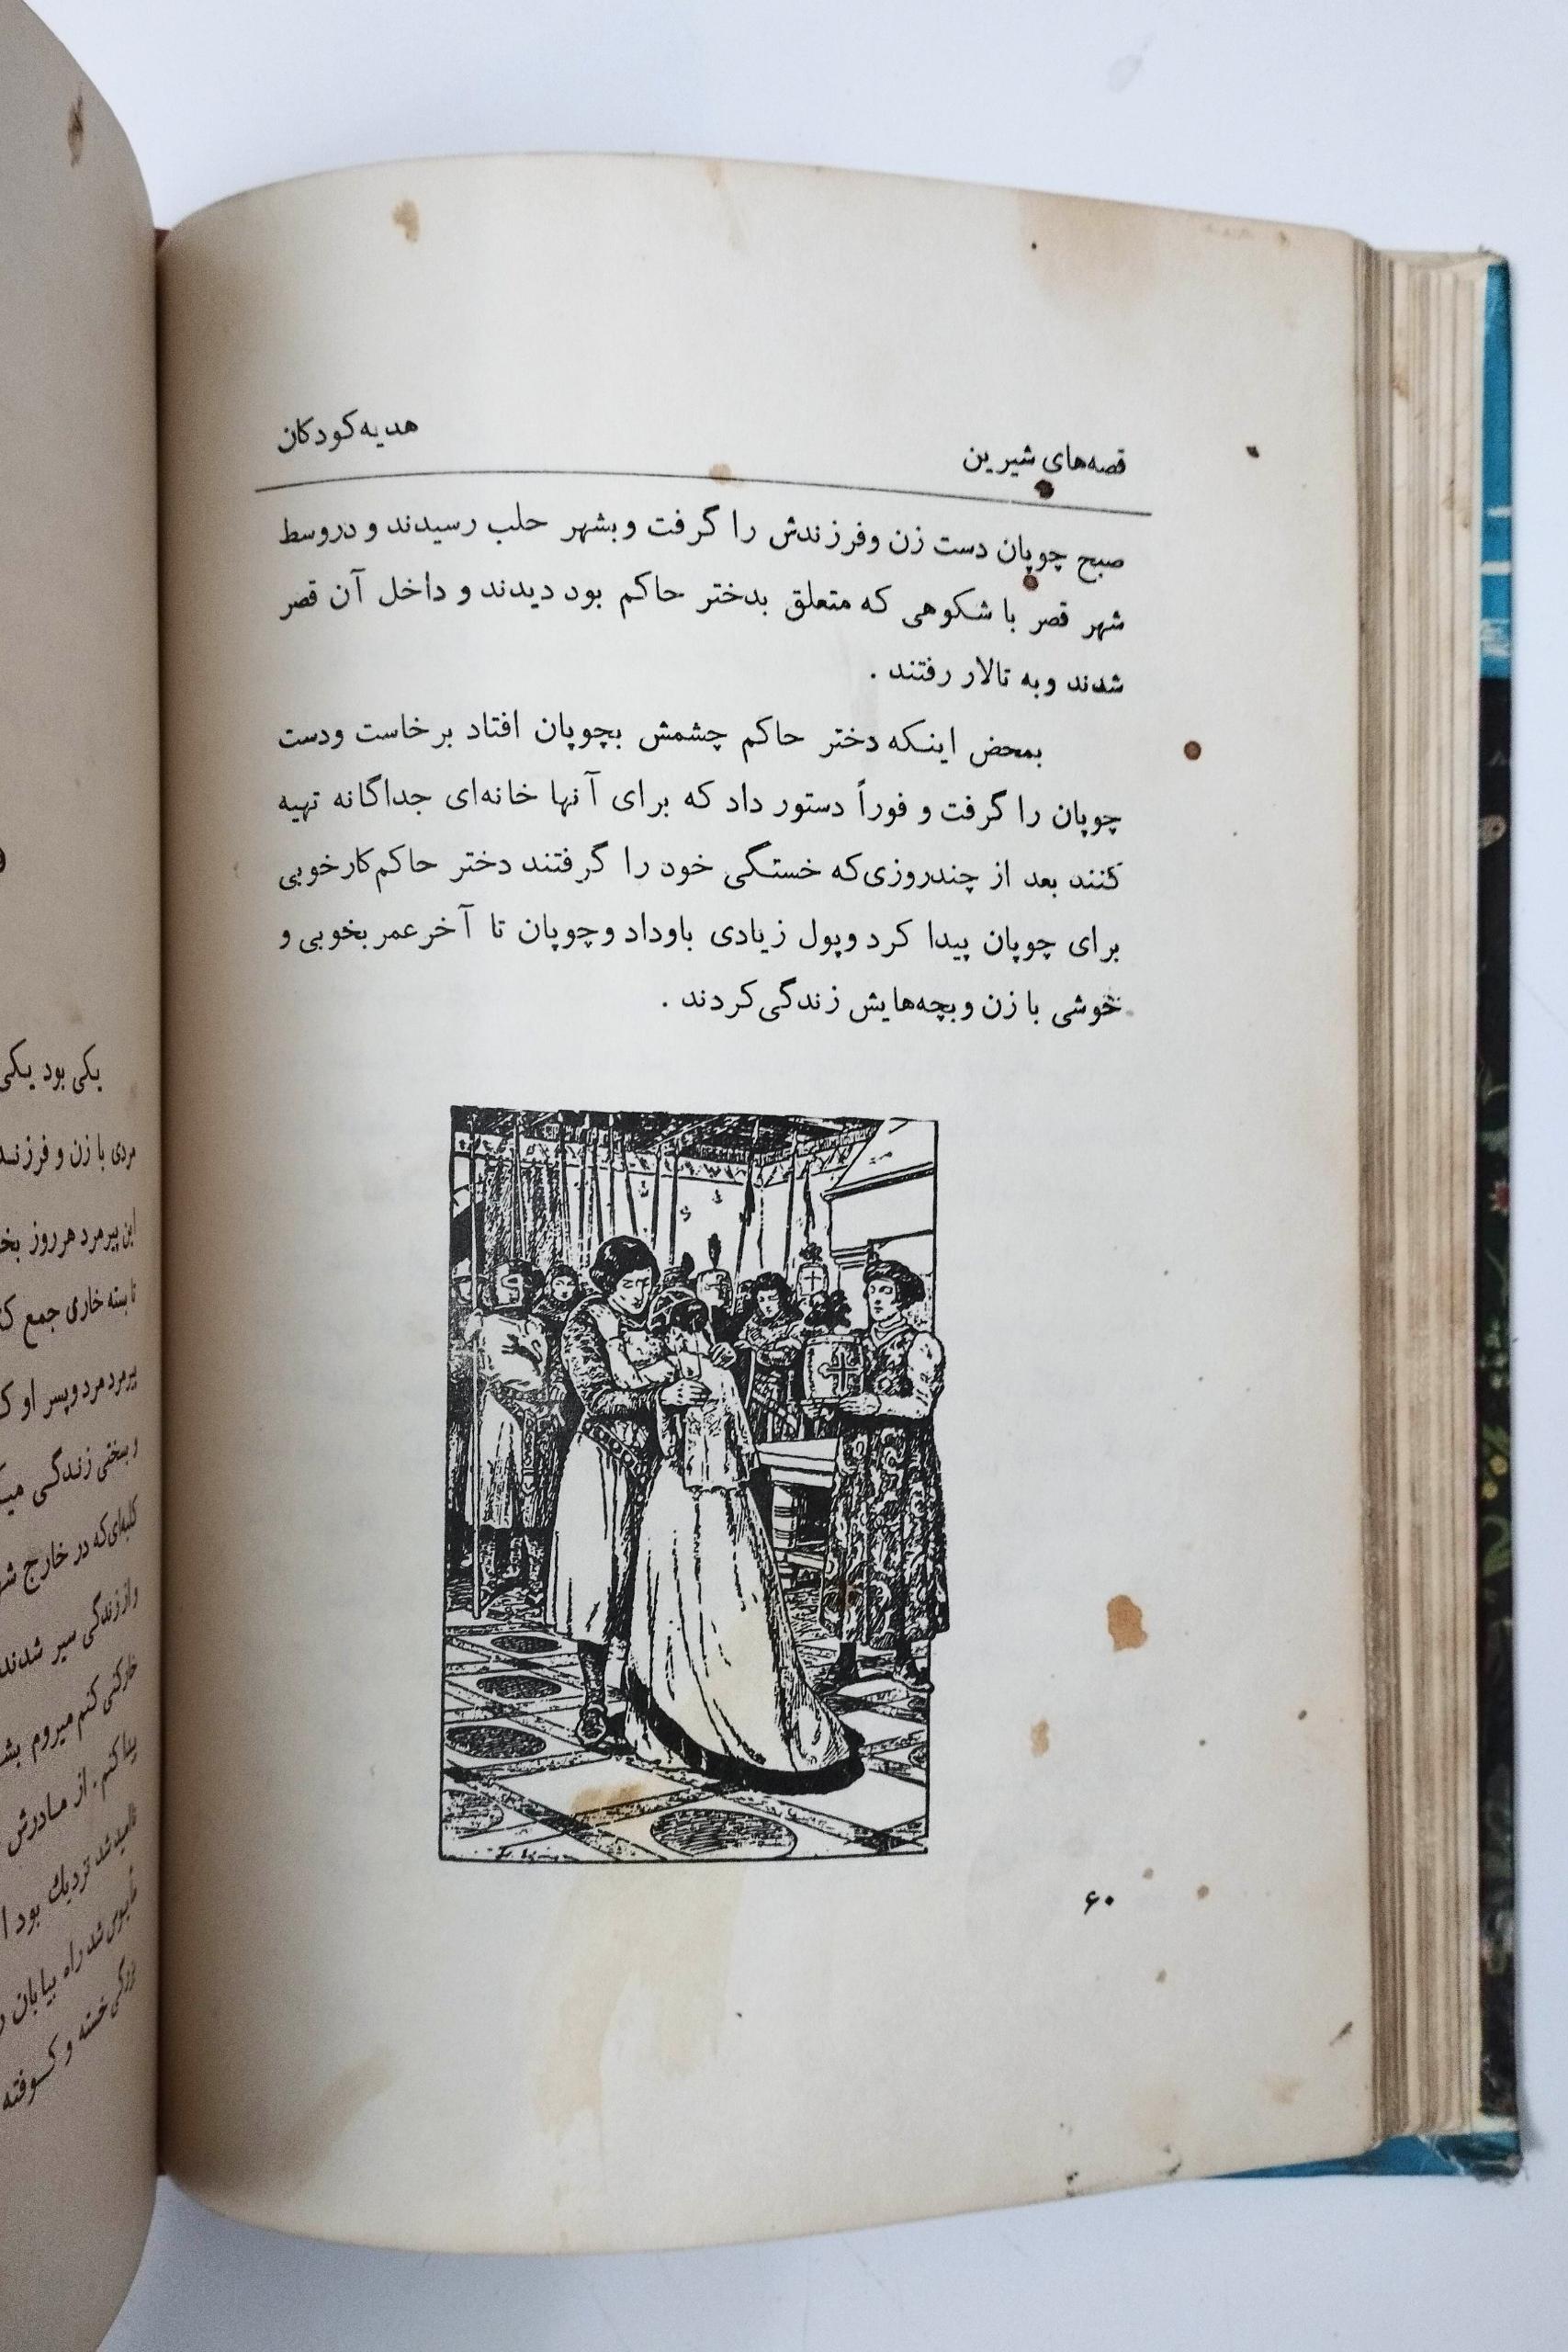 قصه‌های شیرین هدیه کودکان
صبح چوپان دست زن وفرزندش را گرفت وبشهر حلب رسیدند و دروسط
شهر قصر با شکوهی که متعلق بدختر حاکم بود دیدند و داخل آن قصر
شدند وبه تالار رفتند .
بمحض اینکه دختر حاکم چشمش بچوپان افتاد برخاست ودست
چوپان را گرفت و فوراً دستور داد که برای آنها خانه‌ای جداگانه تهیه
کنند بعد از چندروزی‌که خستگی خود را گرفتند دختر حاکم کارخوبی
برای چوپان پیدا کرد وپول زیادی باوداد وچوپان تا آخرعمر بخوبی و
خوشی با زن وبچه‌هایش زندگی‌کردند .
۶۰
یکی بود یکی
مردی با زن و فرزند
این پیرمرد هرروز
تا بسته خاری جمع
پیرمرد مرد وپسر او
و بسختی زندگی
کلبه‌ای‌که در خارج
و از زندگی سیر شدند
خارکنی کنم میروم
پیدا کنم . از مادرش
ناامید شد نزدیك بود
مأیوس شد راه بیابان
بزرگی خسته و کوفته